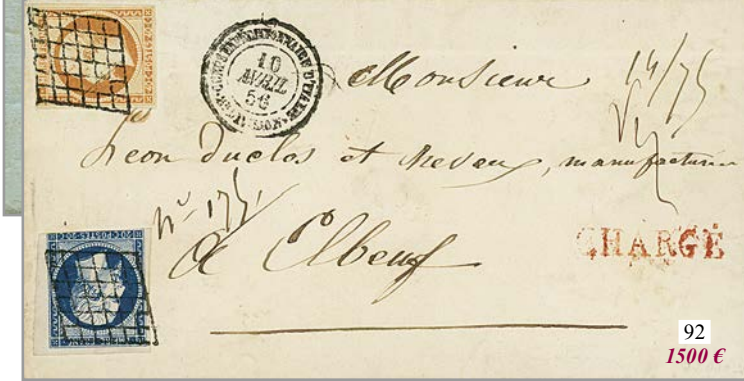 10
AVRIL
56
Monsieur
14/75
Léon Duclos et Neveu, manufacturiers
N° 175.
à Elbeuf
CHARGÉ
92
1500 €